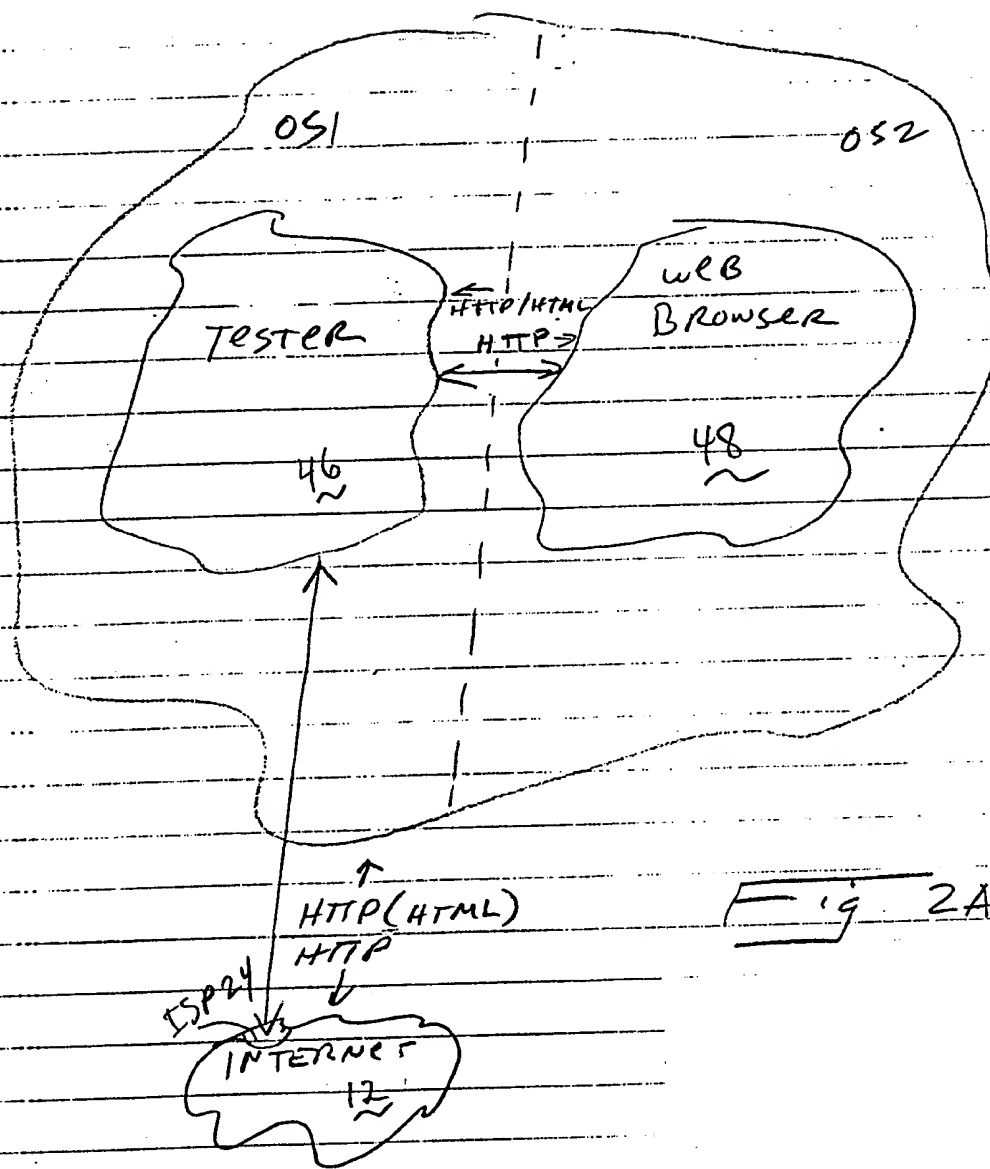 OS1
OS2
TESTER
46
← HTTP/HTML
HTTP →
WEB
BROWSER
48
↑
HTTP(HTML)
HTTP
↓
ISP24
INTERNET
12
Fig. 2A